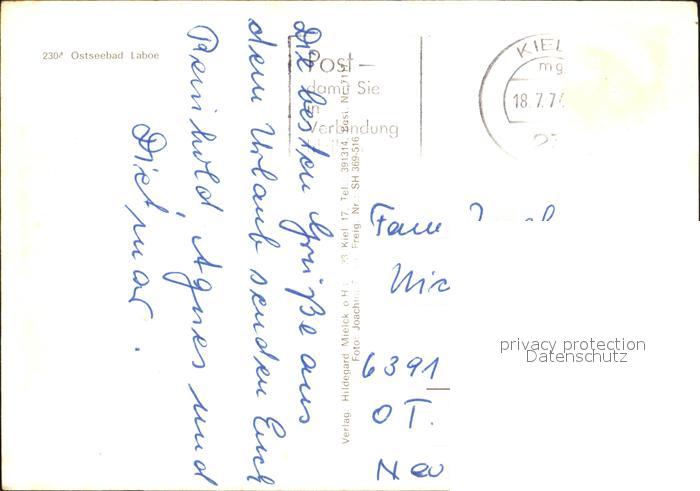 2304 Ostseebad Laboe
Die besten Grüße aus
dem Urlaub senden Euch
Reinhold Agnes und
Dietmar.
Post –
damit Sie
in
Verbindung
KIEL
mg
18.7.7
23
Verlag: Hildegard Mielck o H 23 Kiel 17, Tel. 391314, Best. Nr. 71
Foto: Joachim Freig. Nr. SH 369-516
Fam
6391
OT.
Neu
privacy protection
Datenschutz